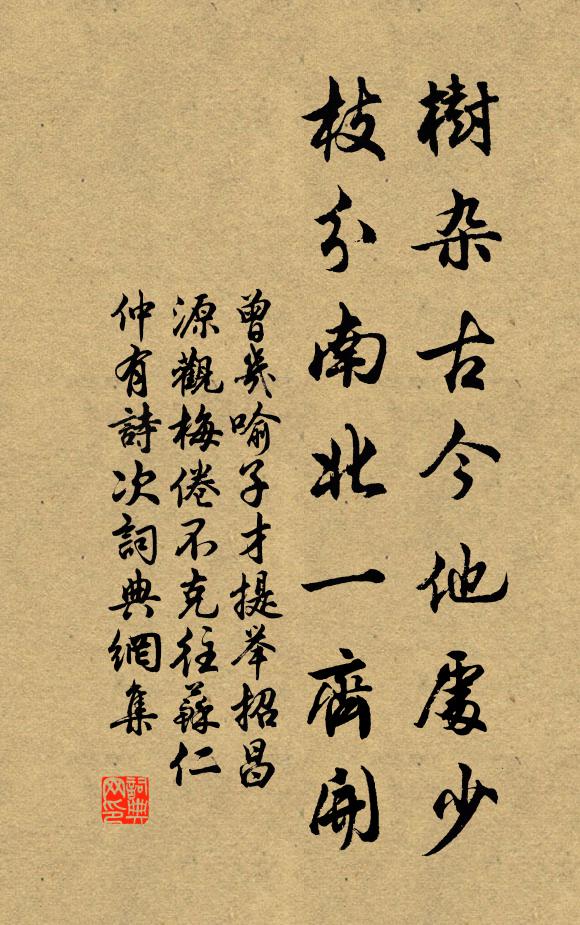 樹杂古今他處少
枝分南北一齊開
曾幾喻子才提举招昌
源觀梅倦不克往蘇仁
仲有詩次詞典網集
詞典网印